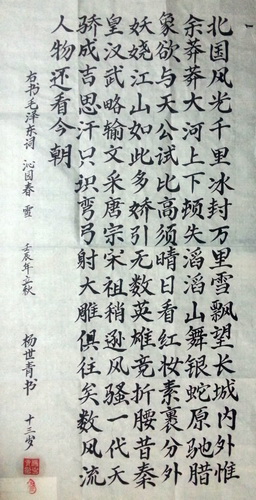 北国风光千里冰封万里雪飘望长城内外惟
余莽莽大河上下顿失滔滔山舞银蛇原驰腊
象欲与天公试比高须晴日看红妆素裹分外
妖娆江山如此多娇引无数英雄竞折腰昔秦
皇汉武略输文采唐宗宋祖稍逊风骚一代天
骄成吉思汗只识弯弓射大雕俱往矣数风流
人物还看今朝
右书毛泽东词 沁园春 雪
壬辰年六秋
杨世青书 十三岁